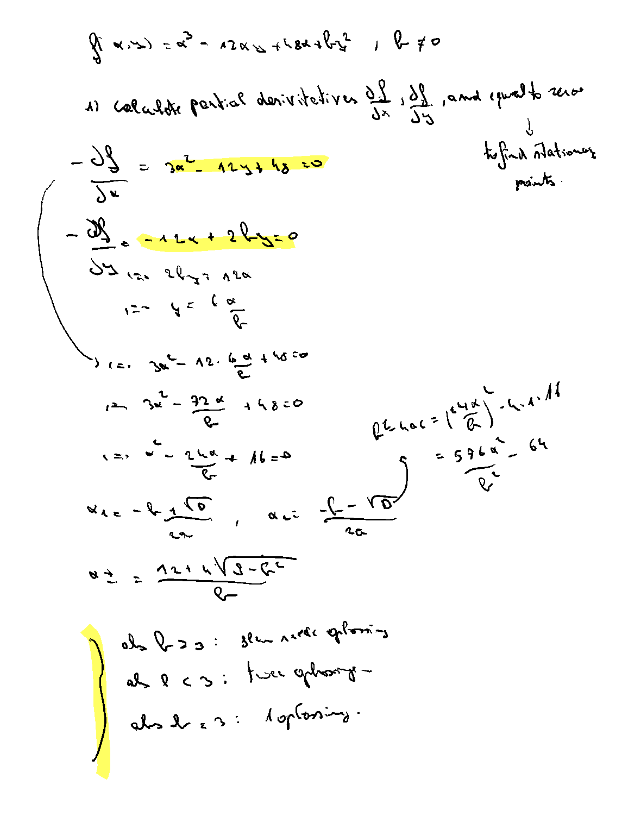 f(x,y) = x³ - 12xy + 48x + by² , b ≠ 0
1) calculate partial derivitetives ∂f/∂x , ∂f/∂y , and equal to zero
↓
to find stationary points.
- ∂f/∂x = 3x² - 12y + 48 = 0
- ∂f/∂y = -12x + 2by = 0
<=> 2by = 12x
<=> y = 6x/b
<=> 3x² - 12 · 6x/b + 48 = 0
<=> 3x² - 72x/b + 48 = 0
<=> x² - 24x/b + 16 = 0
b² - 4ac = (24x/b)² - 4·1·16
= 576x²/b² - 64
x₁ = -b + √D / 2a , x₂ = -b - √D / 2a
x± = 12 + 4√9 - b² / b
als b > 3 : geen reële oplossing
als b < 3 : twee oplossing
als b = 3 : 1 oplossing.